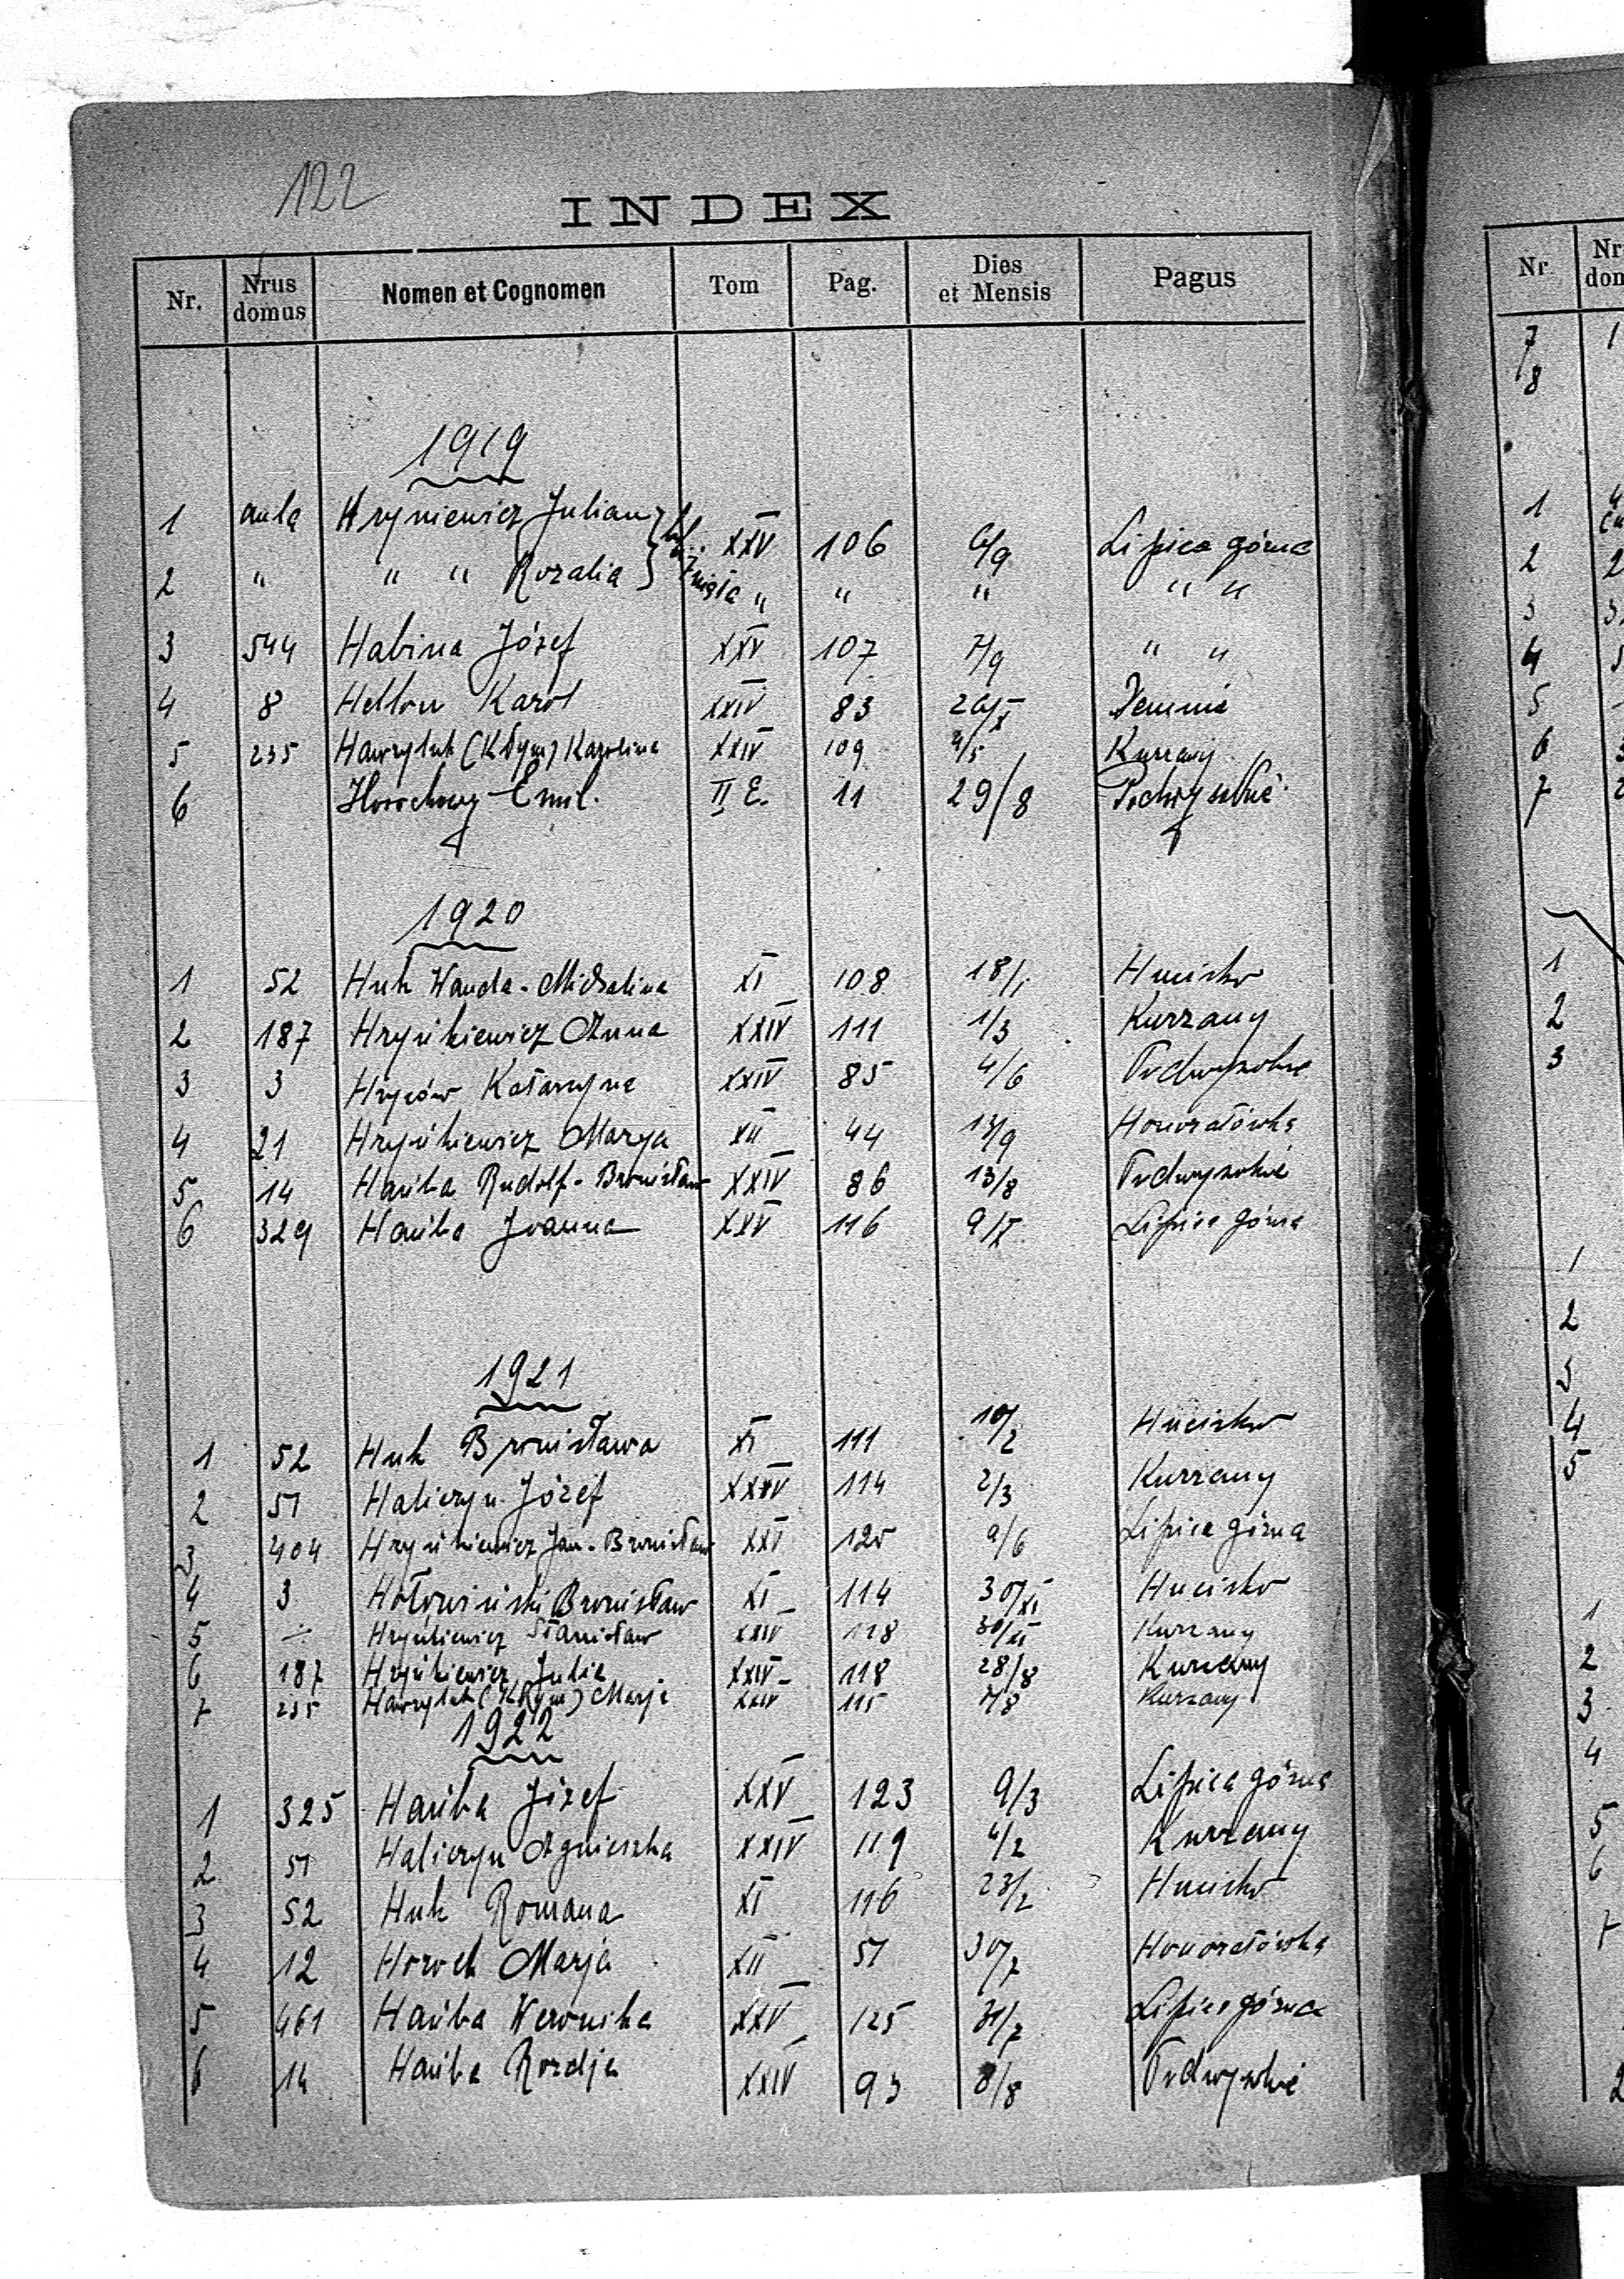 122
INDEX
Nr. Nrus domus Nomen et Cognomen Tom Pag. Dies et Mensis Pagus
1919
1 aula Hryniewicz Julian XXV 106 6/9 Lipica górna
2 " " " Rozalia " " " " "
3 544 Habina Józef XXV 107 7/9 " "
4 8 Karol XXIV 83 26/X
5 235 Hawryluk (Kłym) Karolina XXIV 109 4/5 Kurzany
6 Emil. II E. 11 29/8 Podwysokie
1920
1 52 Huk Wanda-Michalina XI 108 18/1 Hucisko
2 187 Hryńkiewicz Anna XXIV 111 1/3 Kurzany
3 3 Hryców Katarzyna XXIV 85 4/6 Podwysokie
4 21 Hryńkiewicz Marya XII 44 13/9 Honoratówka
5 14 Hańba Rudolf-Bronisław XXIV 86 13/8 Podwysokie
6 329 Hańba Joanna XXV 116 9/X Lipica górna
1921
1 52 Huk Bronisława XI 111 10/2 Hucisko
2 51 Haliczyn Józef 114 2/3 Kurzany
3 404 Hryńkiewicz Jan-Bronisław XXV 120 9/6 Lipica górna
4 3 Hołowiński Bronisław XI 114 30/XI Hucisko
5 Hryńkiewicz Stanisław XXIV 118 Kurzany
6 187 Hryńkiewicz Julia XXIV 118 28/8 Kurzany
7 235 Hawryluk (Kłym) Marja XXIV 115 7/8 Kurzany
1922
1 325 Hańba Józef XXV 123 9/3 Lipica górna
2 51 Haliczyn Agnieszka XXIV 119 4/2 Kurzany
3 52 Huk Romana XI 116 23/2 Hucisko
4 12 Horoch Marja XII 51 30/7 Honoratówka
5 461 Hańba Weronika XXV 125 31/7 Lipica górna
6 14 Hańba XXIV 93 8/8 Podwysokie
Nr
7 1
8
1
2
3
4
5
6
7
1
2
3
1
2
3
4
5
1
2
3
4
5
6
7